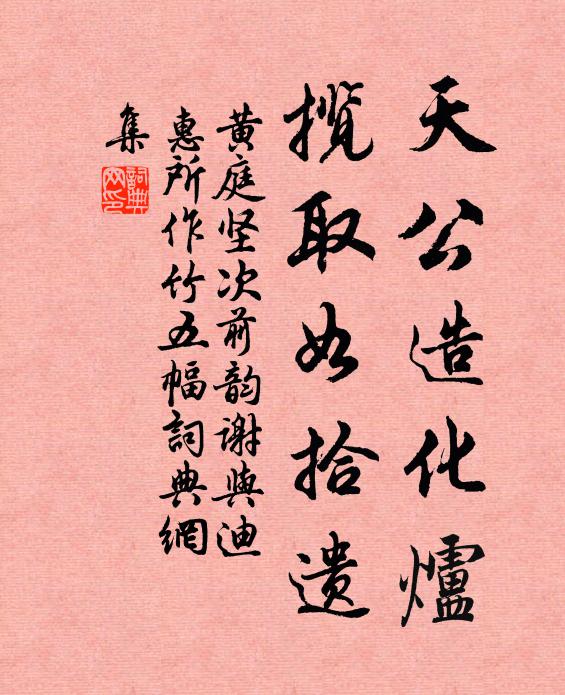 天公造化爐
攬取如拾遗
黄庭坚次前韵谢與迪
惠所作竹五幅詞典網
集
詞典網印